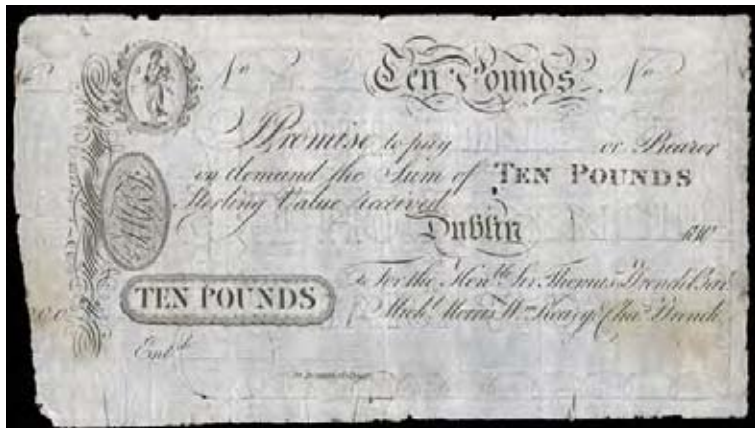 No Ten Pounds. No
I Promise to pay or Bearer
on demand the Sum of TEN POUNDS
Sterling Value received
Dublin 181
For the Honble Sir Thomas Ffrench Bart
TEN POUNDS
Michl Morris Wm Keary & Chas Ffrench
Entd